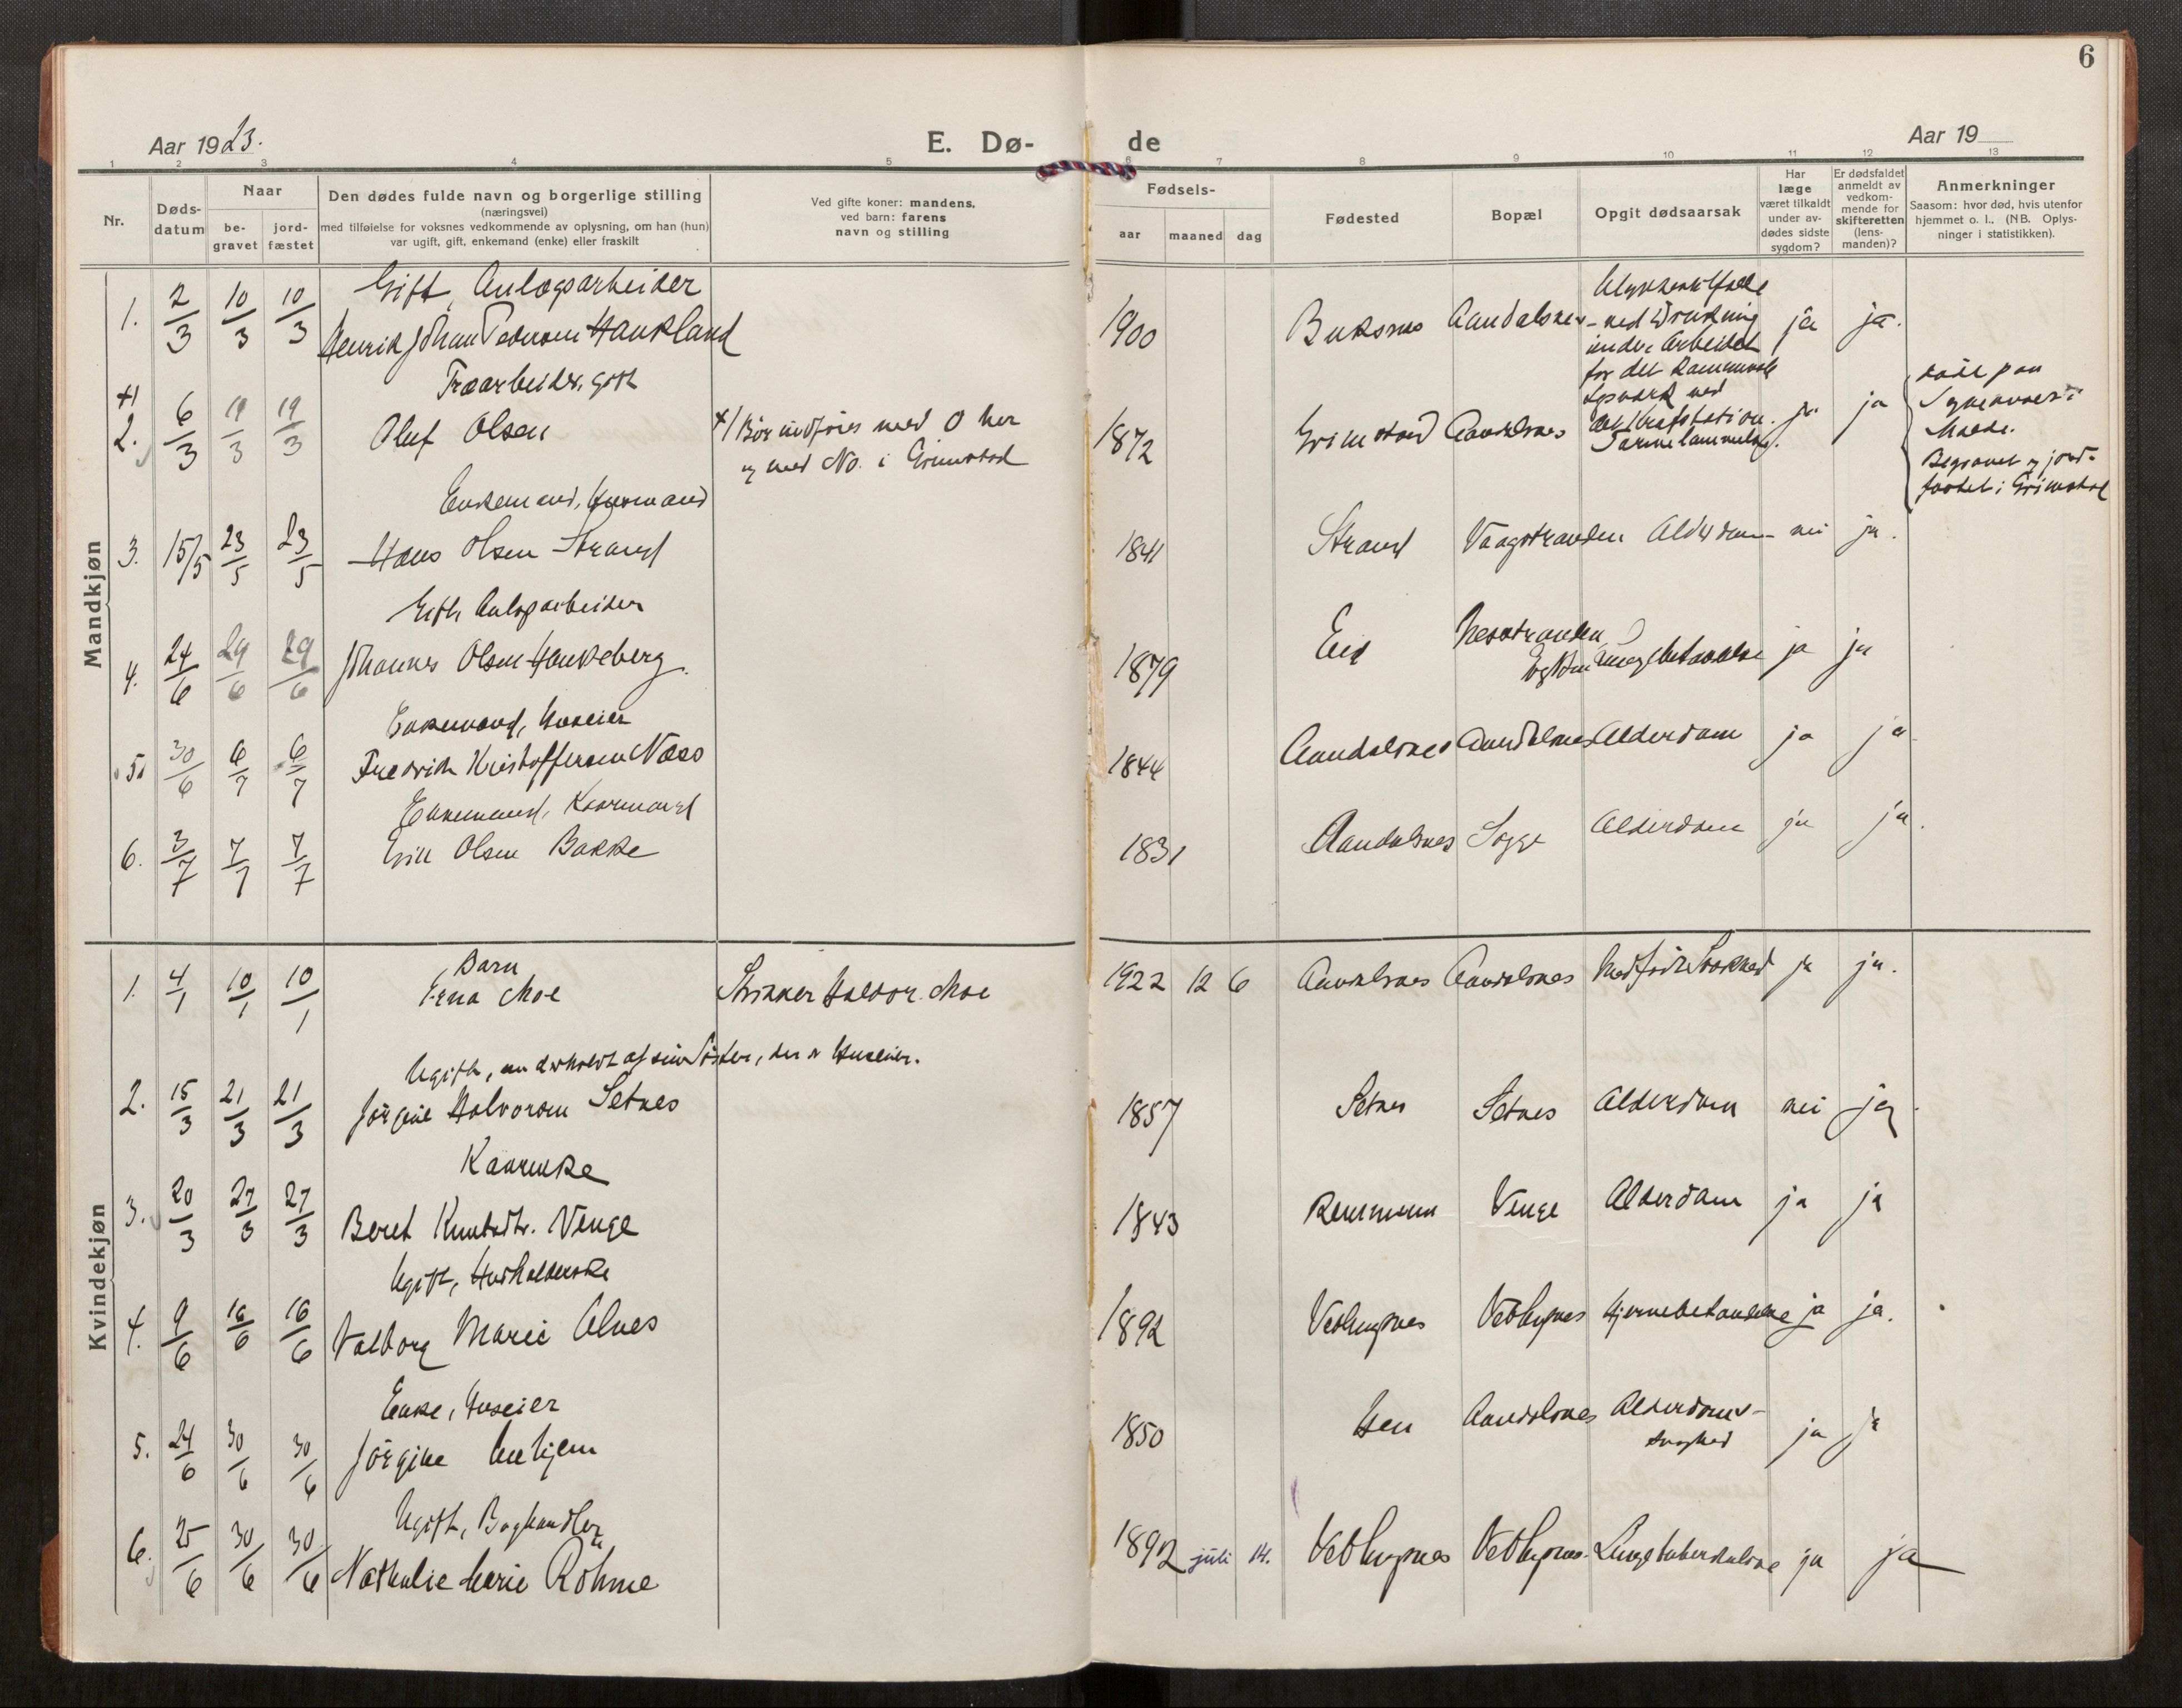 6
Aar 1923.
E. Dø-
de
Aar 19
1 2 3 4 5 6 7 8 9 10 11 12 13
Nr.
Døds-
datum
Naar
be-
gravet
jord-
fæstet
Den dødes fulde navn og borgerlige stilling
(næringsvei)
med tilføielse for voksnes vedkommende av oplysning, om han (hun)
var ugift, gift, enkemand (enke) eller fraskilt
Ved gifte koner: mandens,
ved barn: farens
navn og stilling
Fødsels-
aar maaned dag
Fødested
Bopæl
Opgit dødsaarsak
Har
læge
været tilkaldt
under av-
dødes sidste
sygdom?
Er dødsfaldet
anmeldt av
vedkom-
mende for
skifteretten
(lens-
manden)?
Anmerkninger
Saasom: hvor død, hvis utenfor
hjemmet o. l.. (NB. Oplys-
ninger i statistikken).
Mandkjøn
Gift, Anlægsarbeider
1. 2/3 10/3 10/3 Henrik Johan Pedersen Haukland 1900 Buksnes Aandalsnes ja ja.
Ulykkestilfælde
- ved Drukning
under Arbeidet
for det kommunale
ved
Kraftstation.
Træarbeider, gift
+/ 2. 6/3 19/3 19/3 Oluf Olsen
+/ Bør indføres med 0 her
og med No. i Grimstad
1872 Grimstad Aandalsnes ja ja
Molde.
Begravet og jord-
fæstet i Grimstad
Enkemand, Kaarmand
3. 15/5 23/5 23/5 Hans Olsen Strand 1841 Strand Vaagstranden Alderdom nei ja.
Gift, Anlægsarbeider
4. 24/6 29/6 29/6 Johannes Olsen Haukeberg. 1879 Eid Nesstranden Lungebetændelse ja ja
Enkemand, Huseier
5. 30/6 6/7 6/7 Fredrik Kristoffersen Næss 1844 Aandalsnes Aandalsnes Alderdom ja ja
Enkemand, Kaarmand
6. 3/7 7/7 7/7 Erik Olsen Bakke 1831 Aandalsnes Sogge Alderdom ja ja.
Kvindekjøn
Barn
1. 4/1 10/1 10/1 Erna Moe Halvor Moe 1922 12 6 Aandalsnes Aandalsnes Medfødt Svakhed ja ja.
Ugift, underholdt af sin Søster, der er Huseier.
2. 15/3 21/3 21/3 Jørgine Halvorsen Setnes 1857 Setnes Setnes Alderdom nei ja
Kaarenke
3. 20/3 27/3 27/3 Beret Knutsdtr. Venge 1843 Remmem Venge Alderdom ja ja
Ugift, Husholderske
4. 9/6 16/6 16/6 Valborg Marie Alnes 1892 Veblugsnes Veblugsnes Hjernebetændelse ja ja.
Enke, Huseier
5. 24/6 30/6 30/6 Jørgine Unhjem 1850 Hen Aandalsnes Alderdoms-
svaghed ja ja
Ugift, Boghandler
6. 25/6 30/6 30/6 Nathalie Marie Rohme 1892 juli 14. Veblugsnes Veblugsnes Lungetuberkulose ja ja